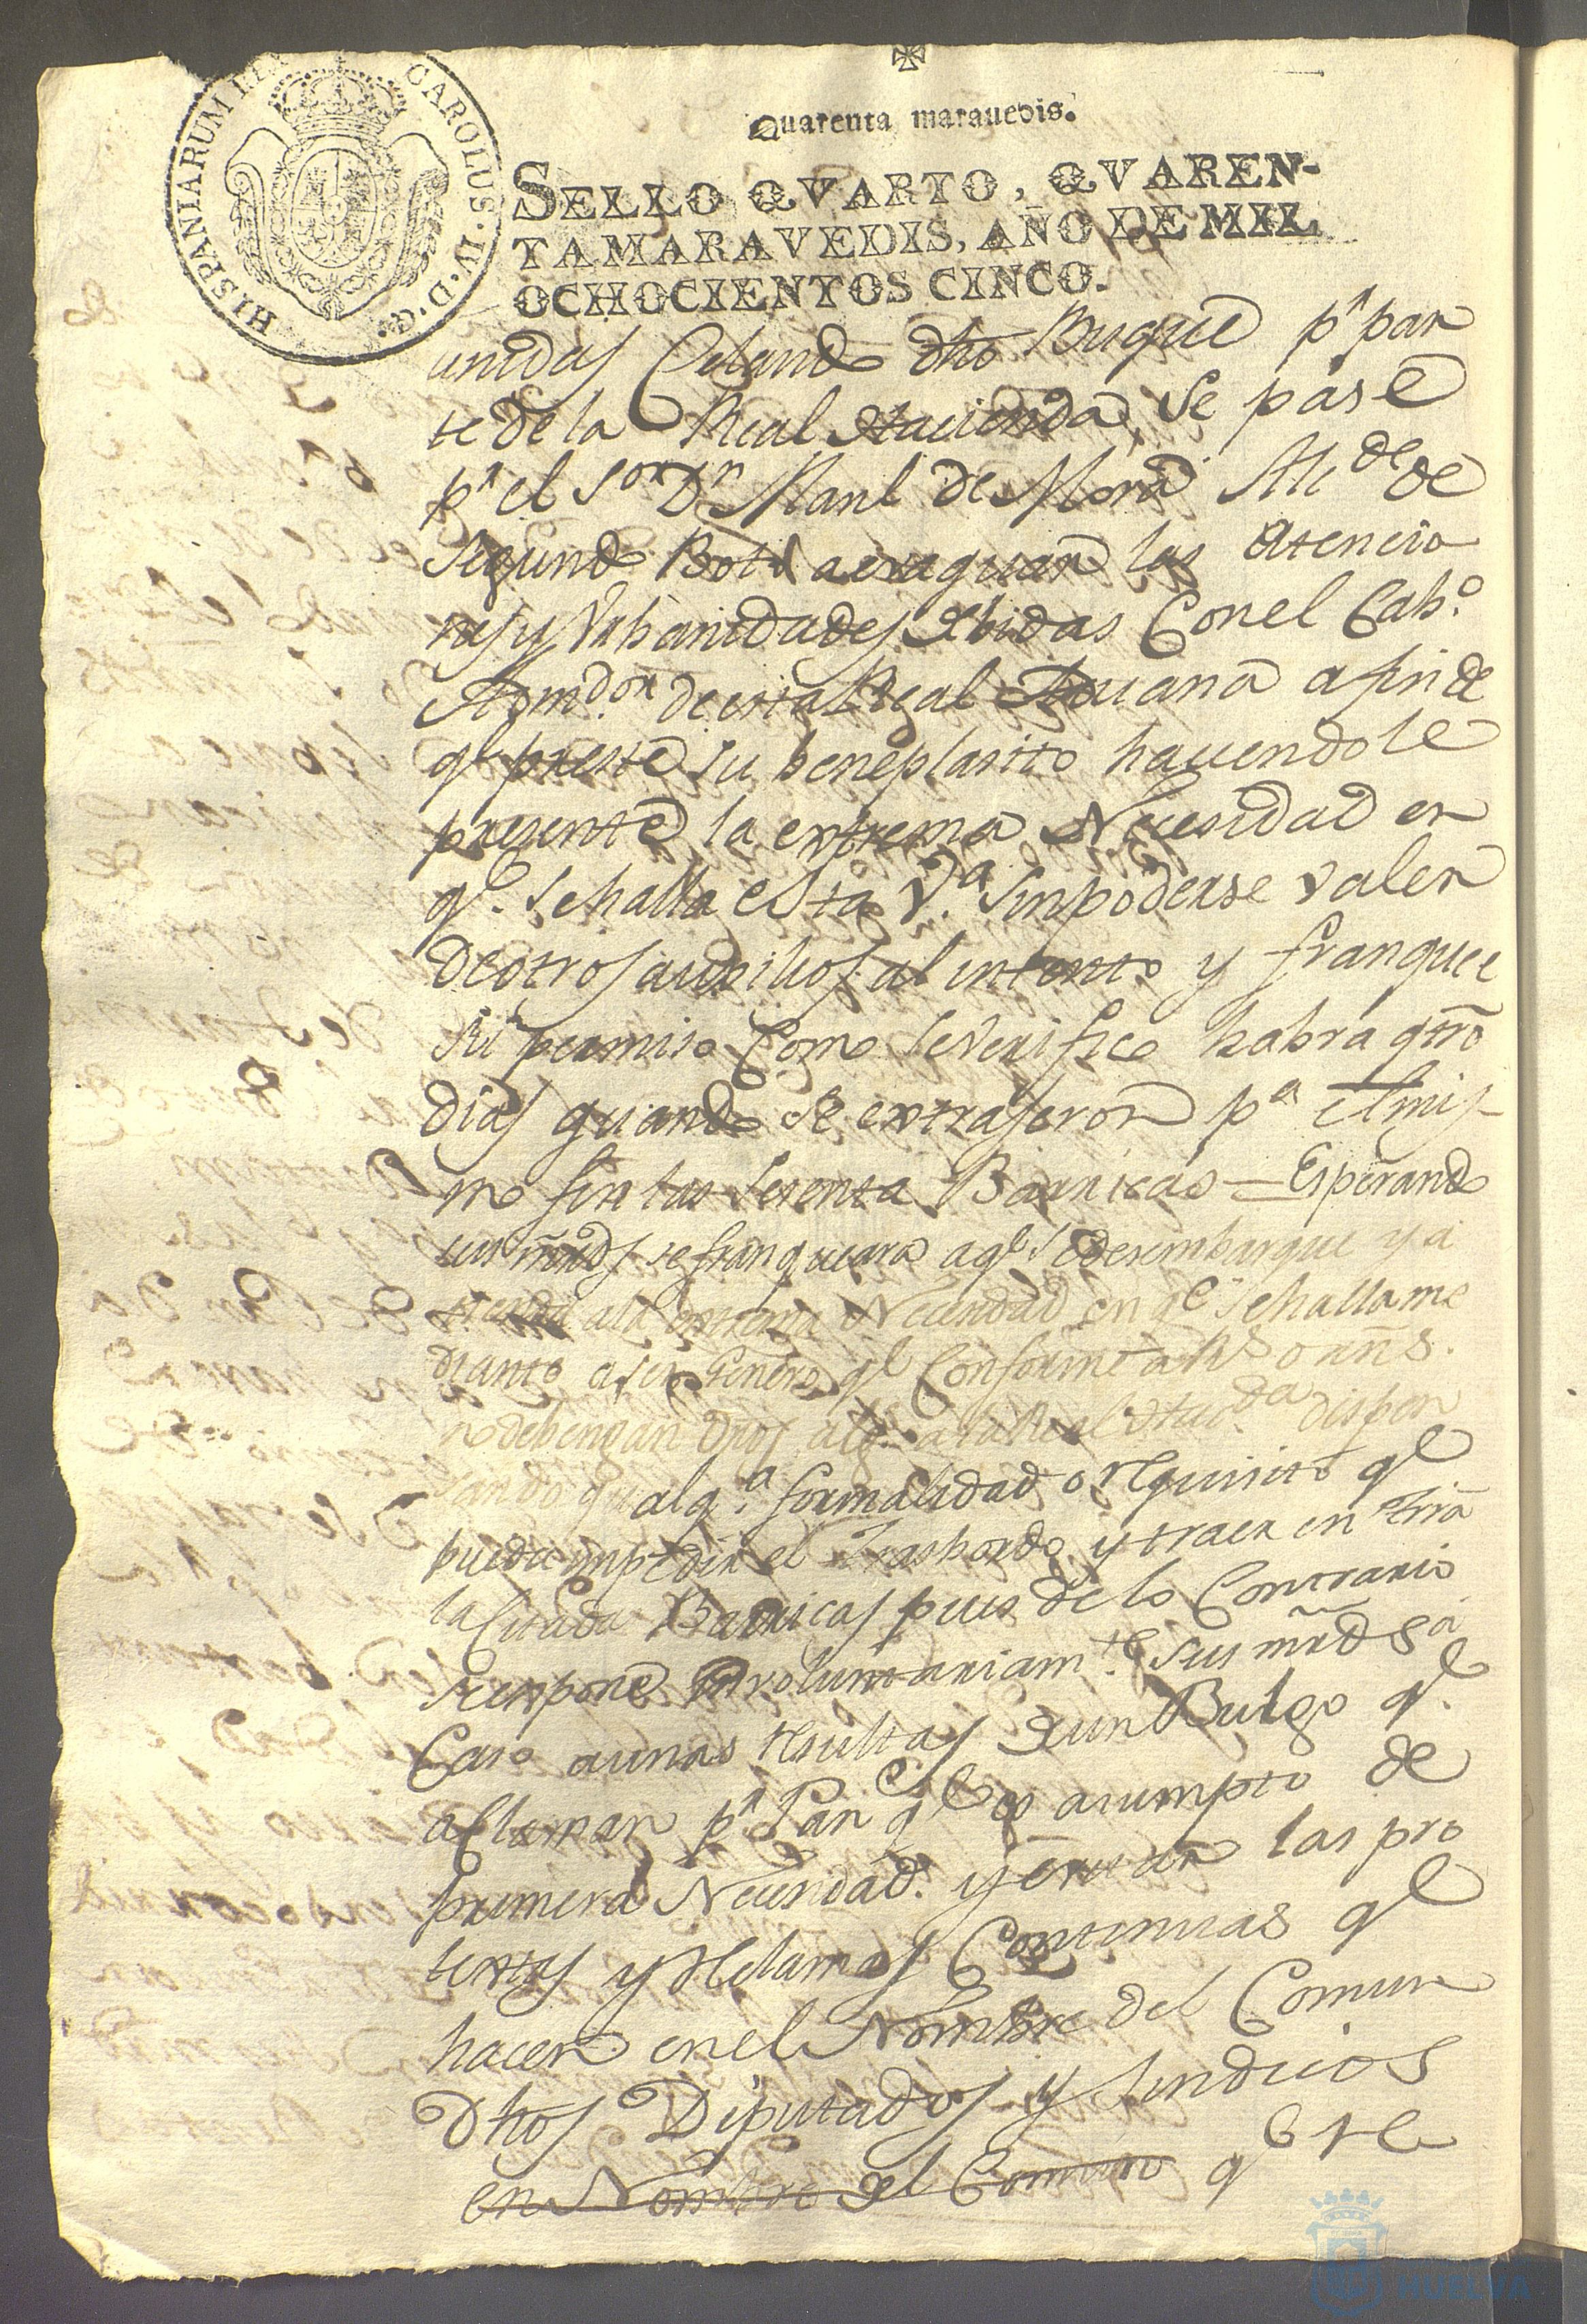 HISPANIARUM REX CAROLUS·IV·D·G·
Quarenta marauedis.
SELLO QVARTO, QVAREN-
TA MARAVEDIS, AÑO DE MIL
OCHOCIENTOS CINCO.
unidas Celando dho Buque pr par
te de la Real Hacienda, Se pase
pr el Sor Dn Manl de Mora Alcde de
Segundo Boto a evaquar las Atencio
nes y Vrbanidades debidas Con el Cabo.
Admdor. de esta Real Aduana a fin de
qe preste su beneplasito haciendole
presente la extrema Necesidad en
qe. se halla esta Va. sin poderse valer
de otros auxilios al intento y franquee
su permiso Como se Verifico habra qtro
dias quando se extrajeron pa el mis-
mo fin las sesenta Barricas = Esperando
sus mrds se franqueara a qe Se desembarque y a
tienda a la extrema Necesidad en qe se halla me
diante a ser Genero qe Conforme a Rs orns.
no debengan dros algs. a la Real Hacda dispen
sando qu alqa. formalidad o requisito qe
pueda impedir el Trasbordo y traer en trra
la Citada Barricas pues de lo Contrario
se expone involuntariamte. sus mrds a
Caso a unas resultas de un Bulgo qe.
aclaman pr Pan qe es asumpto de
primera Necesidad. y evitar las pro
textas y reclamos Continuas qe
hacen en el Nombre del Comun
Dhos Diputados y Sindicos
en Nombre del Comun qe se
HUELVA